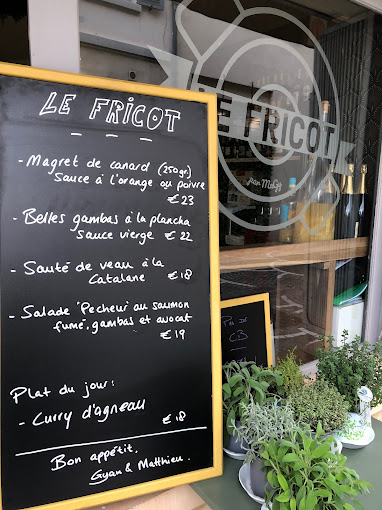 LE FRICOT
- Magret de canard (250gr)
Sauce à l'orange ou poivre
€ 23
- Belles gambas à la plancha
Sauce vierge € 22
- Sauté de veau à la
Catalane € 18
- Salade 'Pecheur' au saumon
fumé, gambas et avocat
€ 19
Plat du jour:
- Curry d'agneau
€ 18
Bon appétit.
Gyan & Matthieu.
LE FRICOT
Pas de
CB